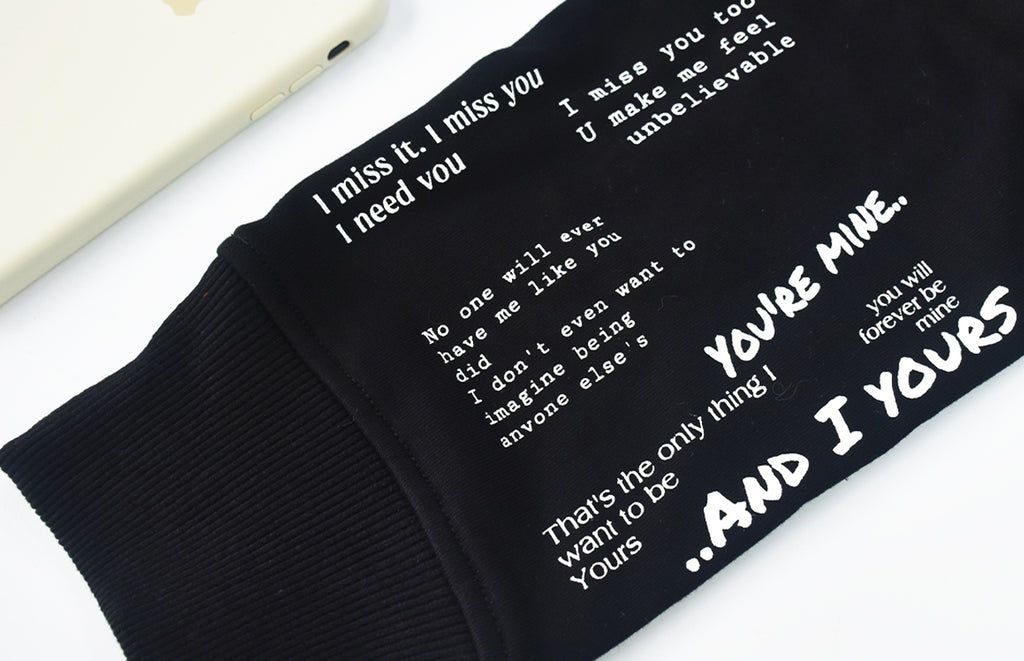 I miss it. I miss you
I need you
I miss you too
U make me feel
unbelievable
No one will ever
have me like you
did
I don't even want to
imagine being
anyone else's
YOU'RE MINE..
you will
forever be
mine
..AND I YOURS
That's the only thing I
want to be
Yours